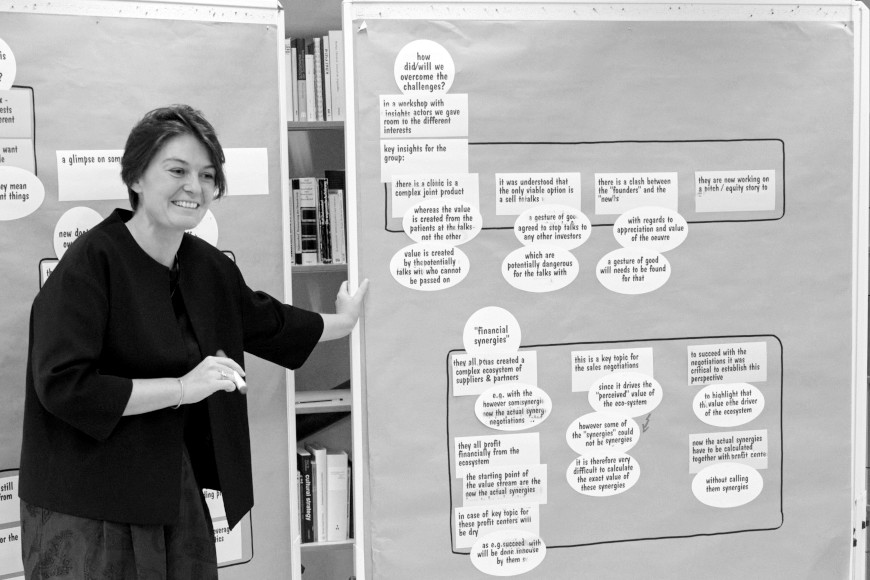 is
?
ests
ferent
want
le
ey mean
nt things
still
from
or the
a glimpse on som
new do
ow
th
ng p
leverag
tics
cultural strategy
how
did/will we
overcome the
challenges?
in a workshop with
insights actors we gave
room to the different
interests
key insights for the
group:
there is a clinic is a
complex joint product
whereas the value
is created from the
patients at the talks
not the other
value is created
by the potentially
talks who cannot
be passed on
it was understood that
the only viable option is
a sell
a gesture of goo
agreed to stop talks to
any other investors
which are
potentially dangerous
for the talks with
there is a clash between
the "founders" and the
"new"s
with regards to
appreciation and value
of the oeuvre
a gesture of good
will needs to be found
for that
they are now working on
a pitch / equity story to
"financial
synergies"
they all created a
complex ecosystem of
suppliers & partners
e.g. with the
however some synergie
now the actual synerg
negotiations
they all profit
financially from the
ecosystem
the starting point of
the value stream are the
now the actual synergies
in case of key topic for
these profit centers will
be dry
as e.g. succeed with
will be done inhouse
by them
this is a key topic for
the sales negotiations
since it drives the
"perceived" value of
the eco-system
however some of
the "synergies" could
not be synergies
it is therefore very
difficult to calculate
the exact value of
these synergies
to succeed with the
negotiations it was
critical to establish this
perspective
to highlight that
the value driver
of the ecosystem
now the actual synergies
have to be calculated
together with profit cente
without calling
them synergies